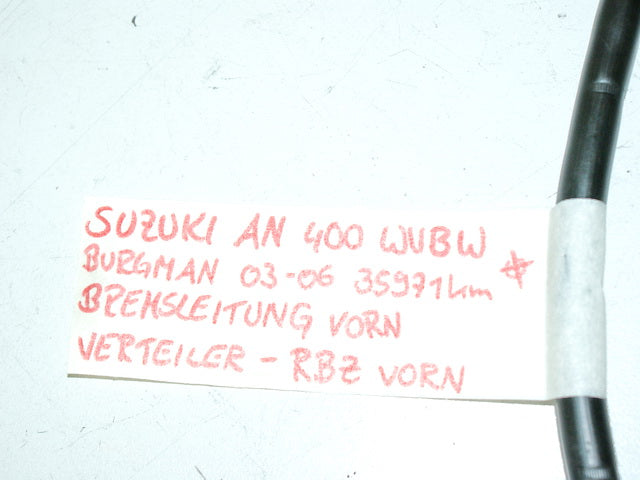 SUZUKI AN 400 WVBW
BURGMAN 03-06 35971km
BREMSLEITUNG VORN
VERTEILER - RBZ VORN